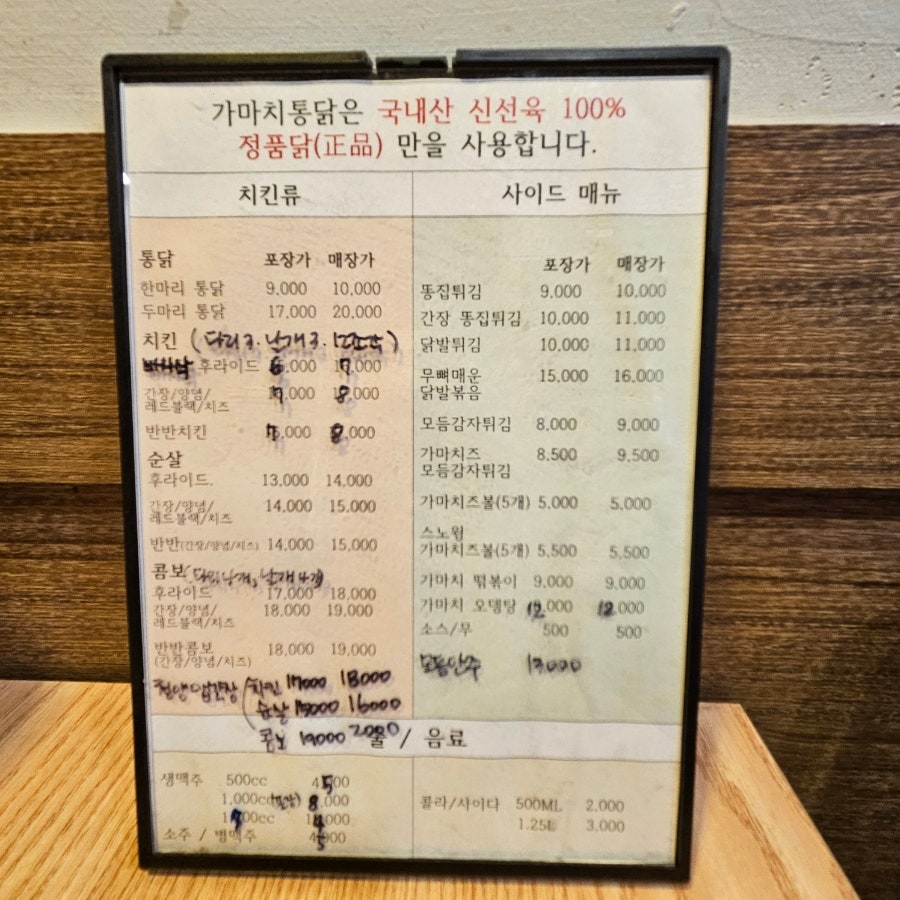 가마치통닭은 국내산 신선육 100%
정품닭(正品) 만을 사용합니다.
치킨류
통닭 포장가 매장가
한마리 통닭 9,000 10,000
두마리 통닭 17,000 20,000
치킨
후라이드
간장/양념/
레드블랙/치즈
반반치킨
순살
후라이드. 13,000 14,000
간장/양념/ 14,000 15,000
레드블랙/치즈
반반(간장/양념/치즈) 14,000 15,000
콤보
후라이드 17,000 18,000
간장/양념/ 18,000 19,000
레드블랙/치즈
반반콤보 18,000 19,000
(간장/양념/치즈)
치킨 17000 18000
순살 15000 16000
콤보 19000
사이드 매뉴
포장가 매장가
똥집튀김 9,000 10,000
간장 똥집튀김 10,000 11,000
닭발튀김 10,000 11,000
무뼈매운 15,000 16,000
닭발볶음
모듬감자튀김 8,000 9,000
가마치즈 8,500 9,500
모듬감자튀김
가마치즈볼(5개) 5,000 5,000
스노윙
가마치즈볼(5개) 5,500 5,500
가마치 떡볶이 9,000 9,000
가마치 오뎅탕 12,000 12,000
소스/무 500 500
모듬안주 13000
술 / 음료
생맥주 500cc
1,000cc
소주 / 병맥주
콜라/사이다 500ML 2,000
1.25L 3,000